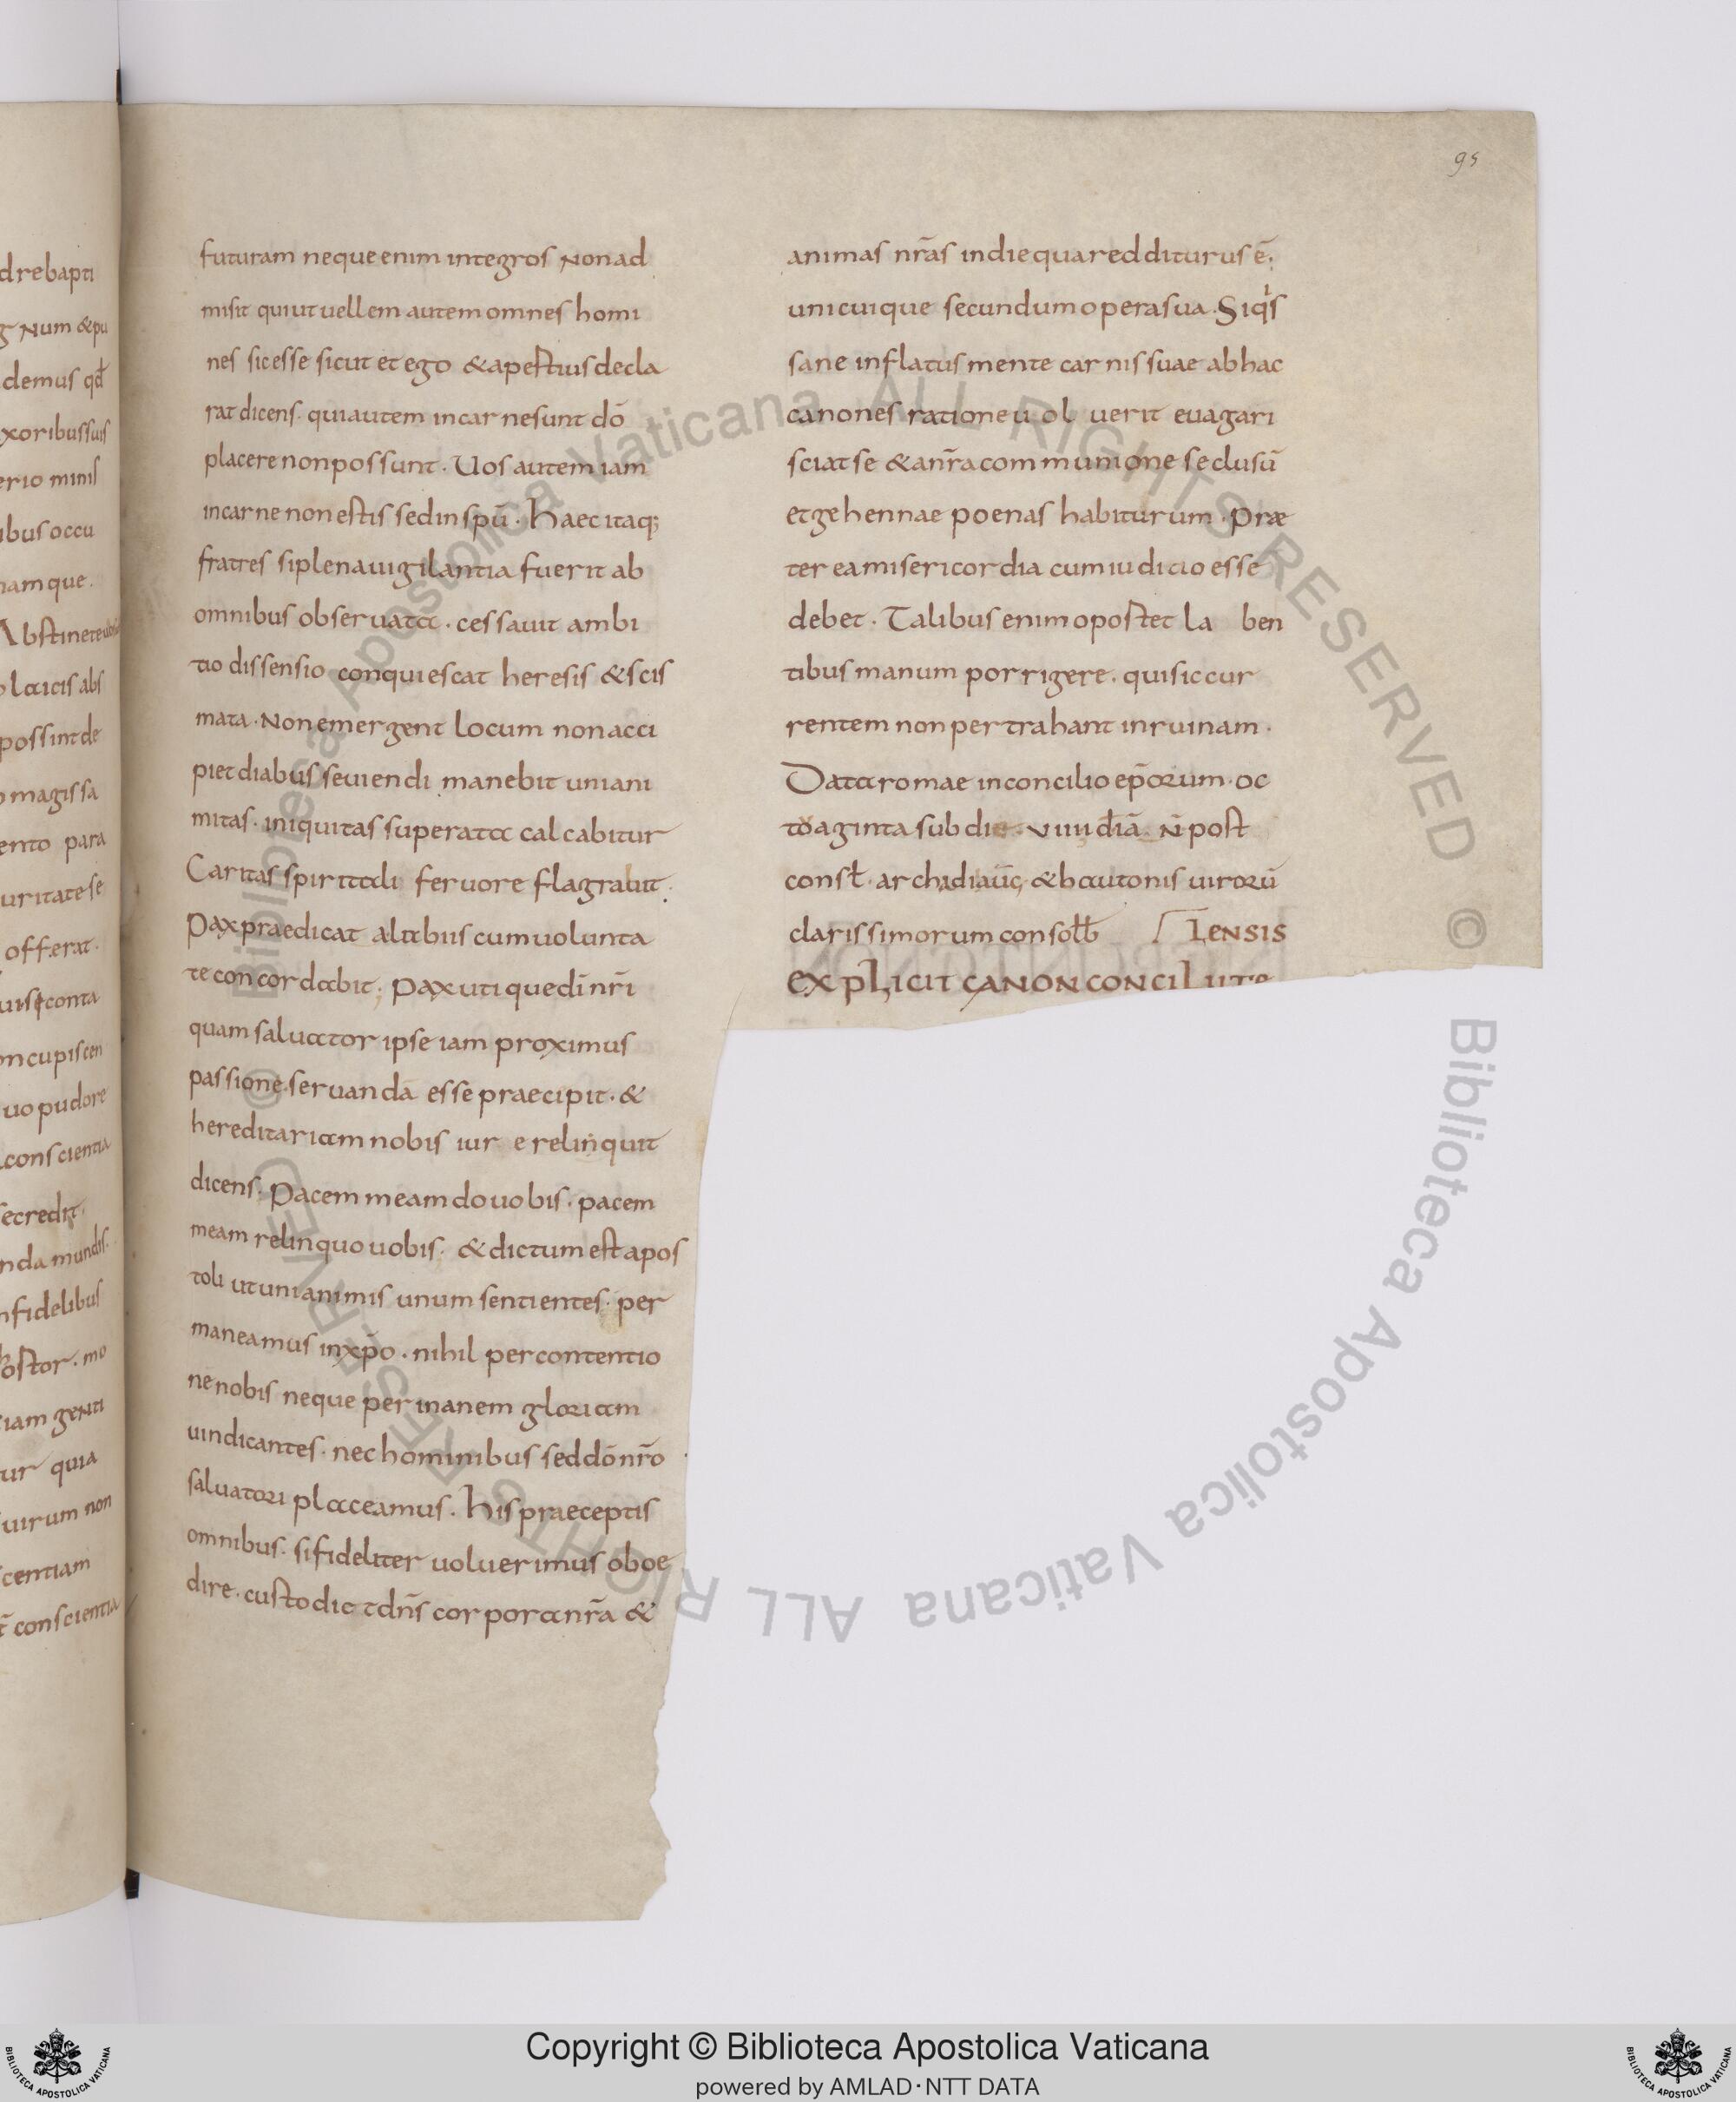 95
drebapti
g Num &pu
demus qđ
xoribussuis
erio minis
ibus occu
namque.
Abstinete
olaicis abs
possintde
o magissa
ento para
uritatese
offerat.
conta
oncupiscen
uo pudore
conscientia
secredit.
nda mundis.
nfidelibus
ostor. mo
iam genti
ur quia
uirum non
centiam
conscientia
futuram nequeenim integros Nonad
misit quiutuellem autem omnes homi
nes sicesse sicut et ego &apestiusdecla
rat dicens. quiautem incarnesunt dō
placere nonpossunt. Uos autem iam
incarne nonestis sedinspū. haec itaq;
fratres siplenauigilantia fuerit ab
omnibus obseruata. cessauit ambi
tio dissensio conquiescat heresis &scis
mata. Nonemergent locum nonacci
piet diabus seuiendi manebit uniani
mitas. iniquitas superata calcabitur
Caritas spiritali feruore flagrabit.
Paxpraedicat altabiis cumuolunta
te concordabit; pax uti quedīnr̄i
quam saluator ipse iam proximus
passione seruandā esse praecipit. &
hereditariam nobis iur e relinquit
dicens. Pacem meam douobis. pacem
meam relinquo uobis. & dictum est apos
toli ut unianimis unum sentientes. per
maneamus inxp̄o. nihil percontentio
ne nobis neque per inanem gloriam
uindicantes. nec hominibus seddōnr̄o
saluatori placeamus. his praeceptis
omnibus. sifideliter uoluerimus oboe
dire. custodic tdn̄s corporanr̄a &
animas nr̄as indiequaredditurus ē.
unicuique secundumoperasua. Siqis
sane inflatus mente carnis suae abhac
canones rationeu ol uerit euagari
sciatse &anr̄acommunione seclusū
etgehennae poenas habiturum. præ
ter eamisericordia cumiudicio esse
debet. Talibus enimopostet la ben
tibus manum porrigere. quisiccur
rentem nonpertrahant inruinam.
Dataromae inconcilio ep̄orum. oc
toaginta subdie. uiiii diā. N̄ post
const. archadiaūc, &bautonis uirorū
clarissimorum consolb lensis
explicit canon concil
Copyright © Biblioteca Apostolica Vaticana
powered by AMLAD·NTT DATA
BIBLIOTECA APOSTOLICA VATICANA
BIBLIOTECA APOSTOLICA VATICANA
© Biblioteca Apostolica Vaticana ALL RIGHTS RESERVED
© Biblioteca Apostolica Vaticana ALL RIGHTS RESERVED